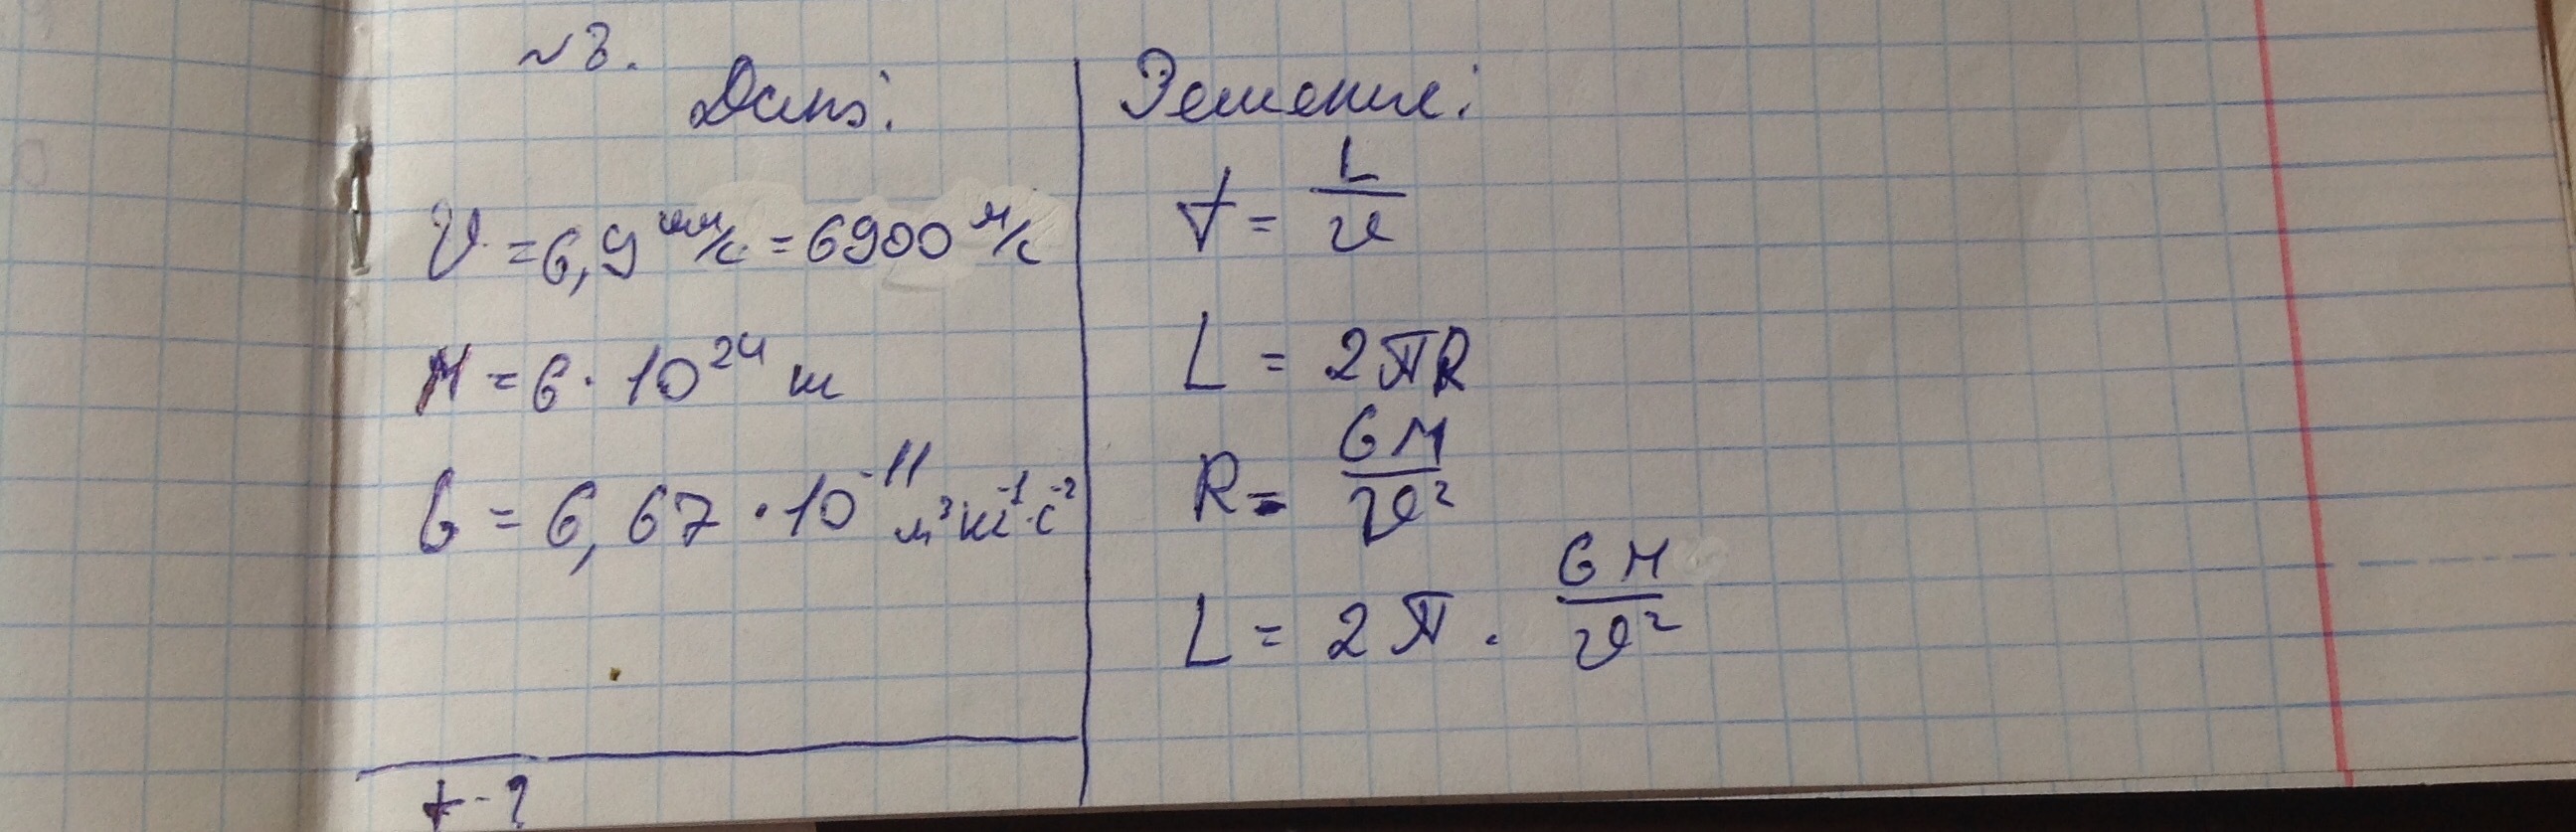 №3.
Дано:
V = 6,9 км/с = 6900 м/с
M = 6 · 10²⁴ кг
G = 6,67 · 10⁻¹¹ м³ кг⁻¹ · с⁻²
t - ?
Решение:
t = L/v
L = 2πR
R = GM/v²
L = 2π · GM/v²